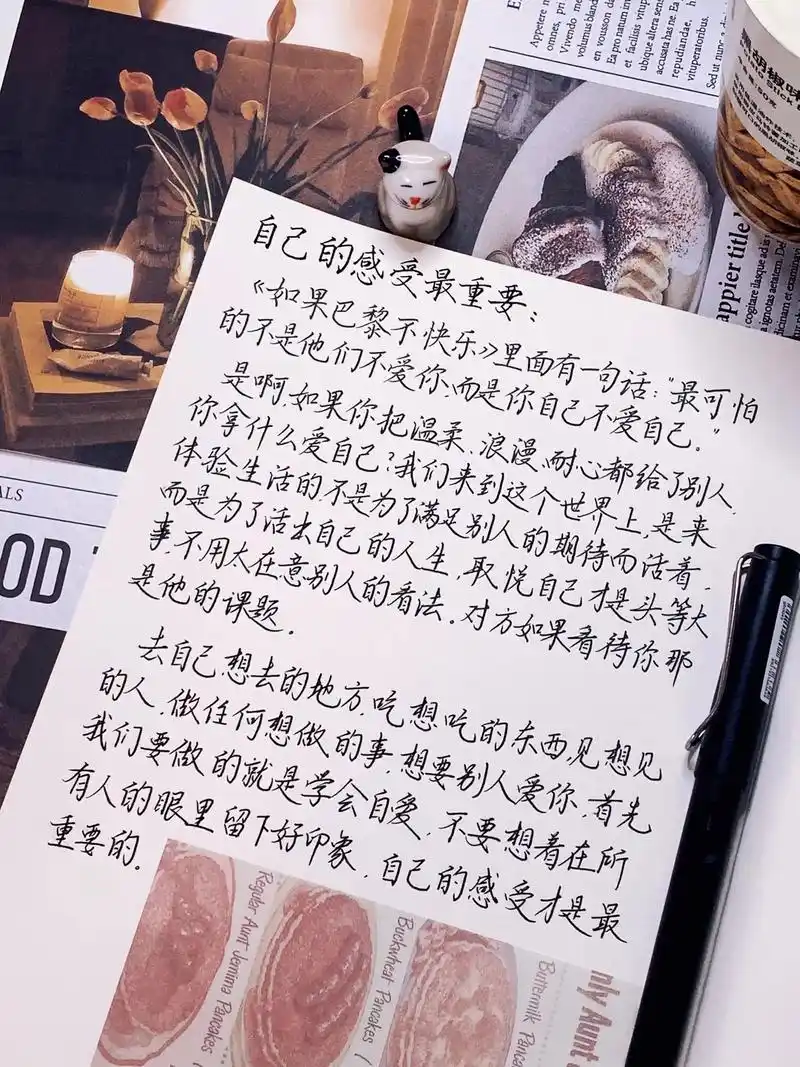 Appetere n
omnes, pri
Vivendo me
volumus bland
en vousson da
Ea pro natum in
et facilisis vitup
ubique altera sent
accusata has ne. Ea
repudiandae, h
vituperatoribus.
黑胡椒味
appier title l
ALS
OD
自己的感受最重要:
《如果巴黎不快乐》里面有一句话:"最可怕
的不是他们不爱你,而是你自己不爱自己."
是啊,如果你把温柔、浪漫、耐心都给了别人,
你拿什么爱自己?我们来到这个世界上,是来
体验生活的不是为了满足别人的期待而活着,
而是为了活出自己的人生,取悦自己才是头等大
事,不用太在意别人的看法.对方如果看待你那
是他的课题.
去自己想去的地方,吃想吃的东西,见想见
的人,做任何想做的事,想要别人爱你,首先
我们要做的就是学会自爱,不要想着在所
有人的眼里留下好印象,自己的感受才是最
重要的.
Regular Aunt Jemima Pancakes
Buckwheat Pancakes
Buttermilk Panca
nly Aunt